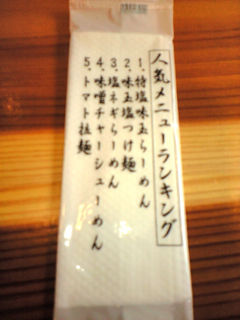 人気メニューランキング
1、特塩味玉らーめん
2、味玉塩つけ麺
3、塩ネギらーめん
4、味噌チャーシューめん
5、トマト拉麺